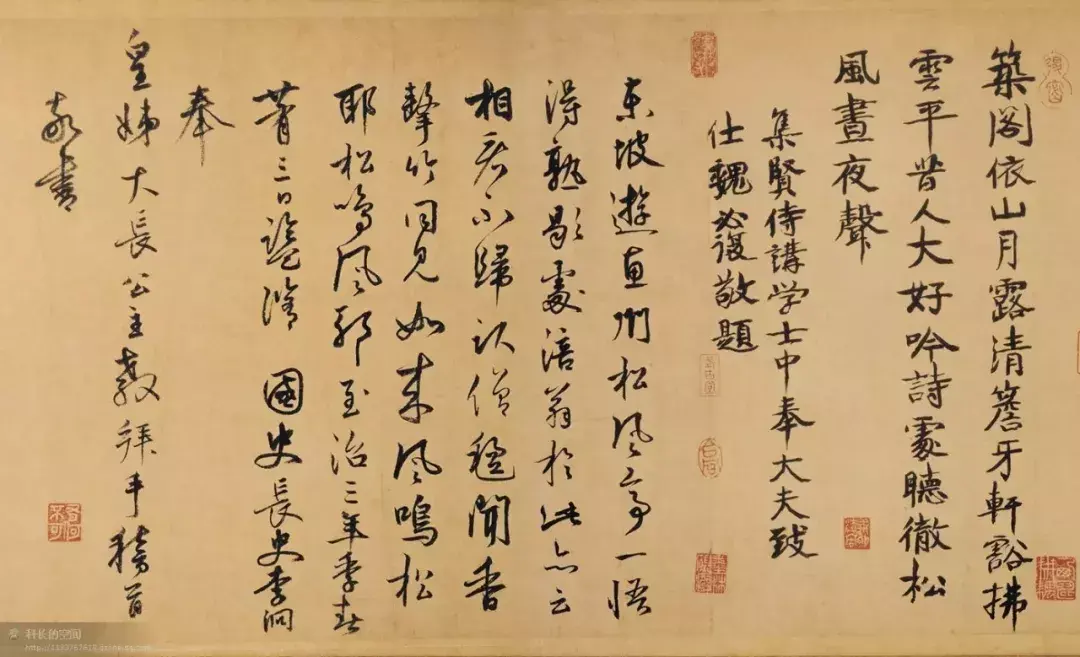 築閣依山月露清簷牙軒豁拂
雲平昔人大好吟詩處聽徹松
風晝夜聲
集賢侍講学士中奉大夫致
仕魏必復敬題
東坡遊惠州松風亭一悟
得熟歇處涪翁於此亦云
相君不歸僧龕聞香
擊竹同見如來風鳴松
耶松鳴風耶至治三年季春
三日監脩國史長史李泂
奉
皇姊大長公主教拜手稽首
敬書
科长的空间